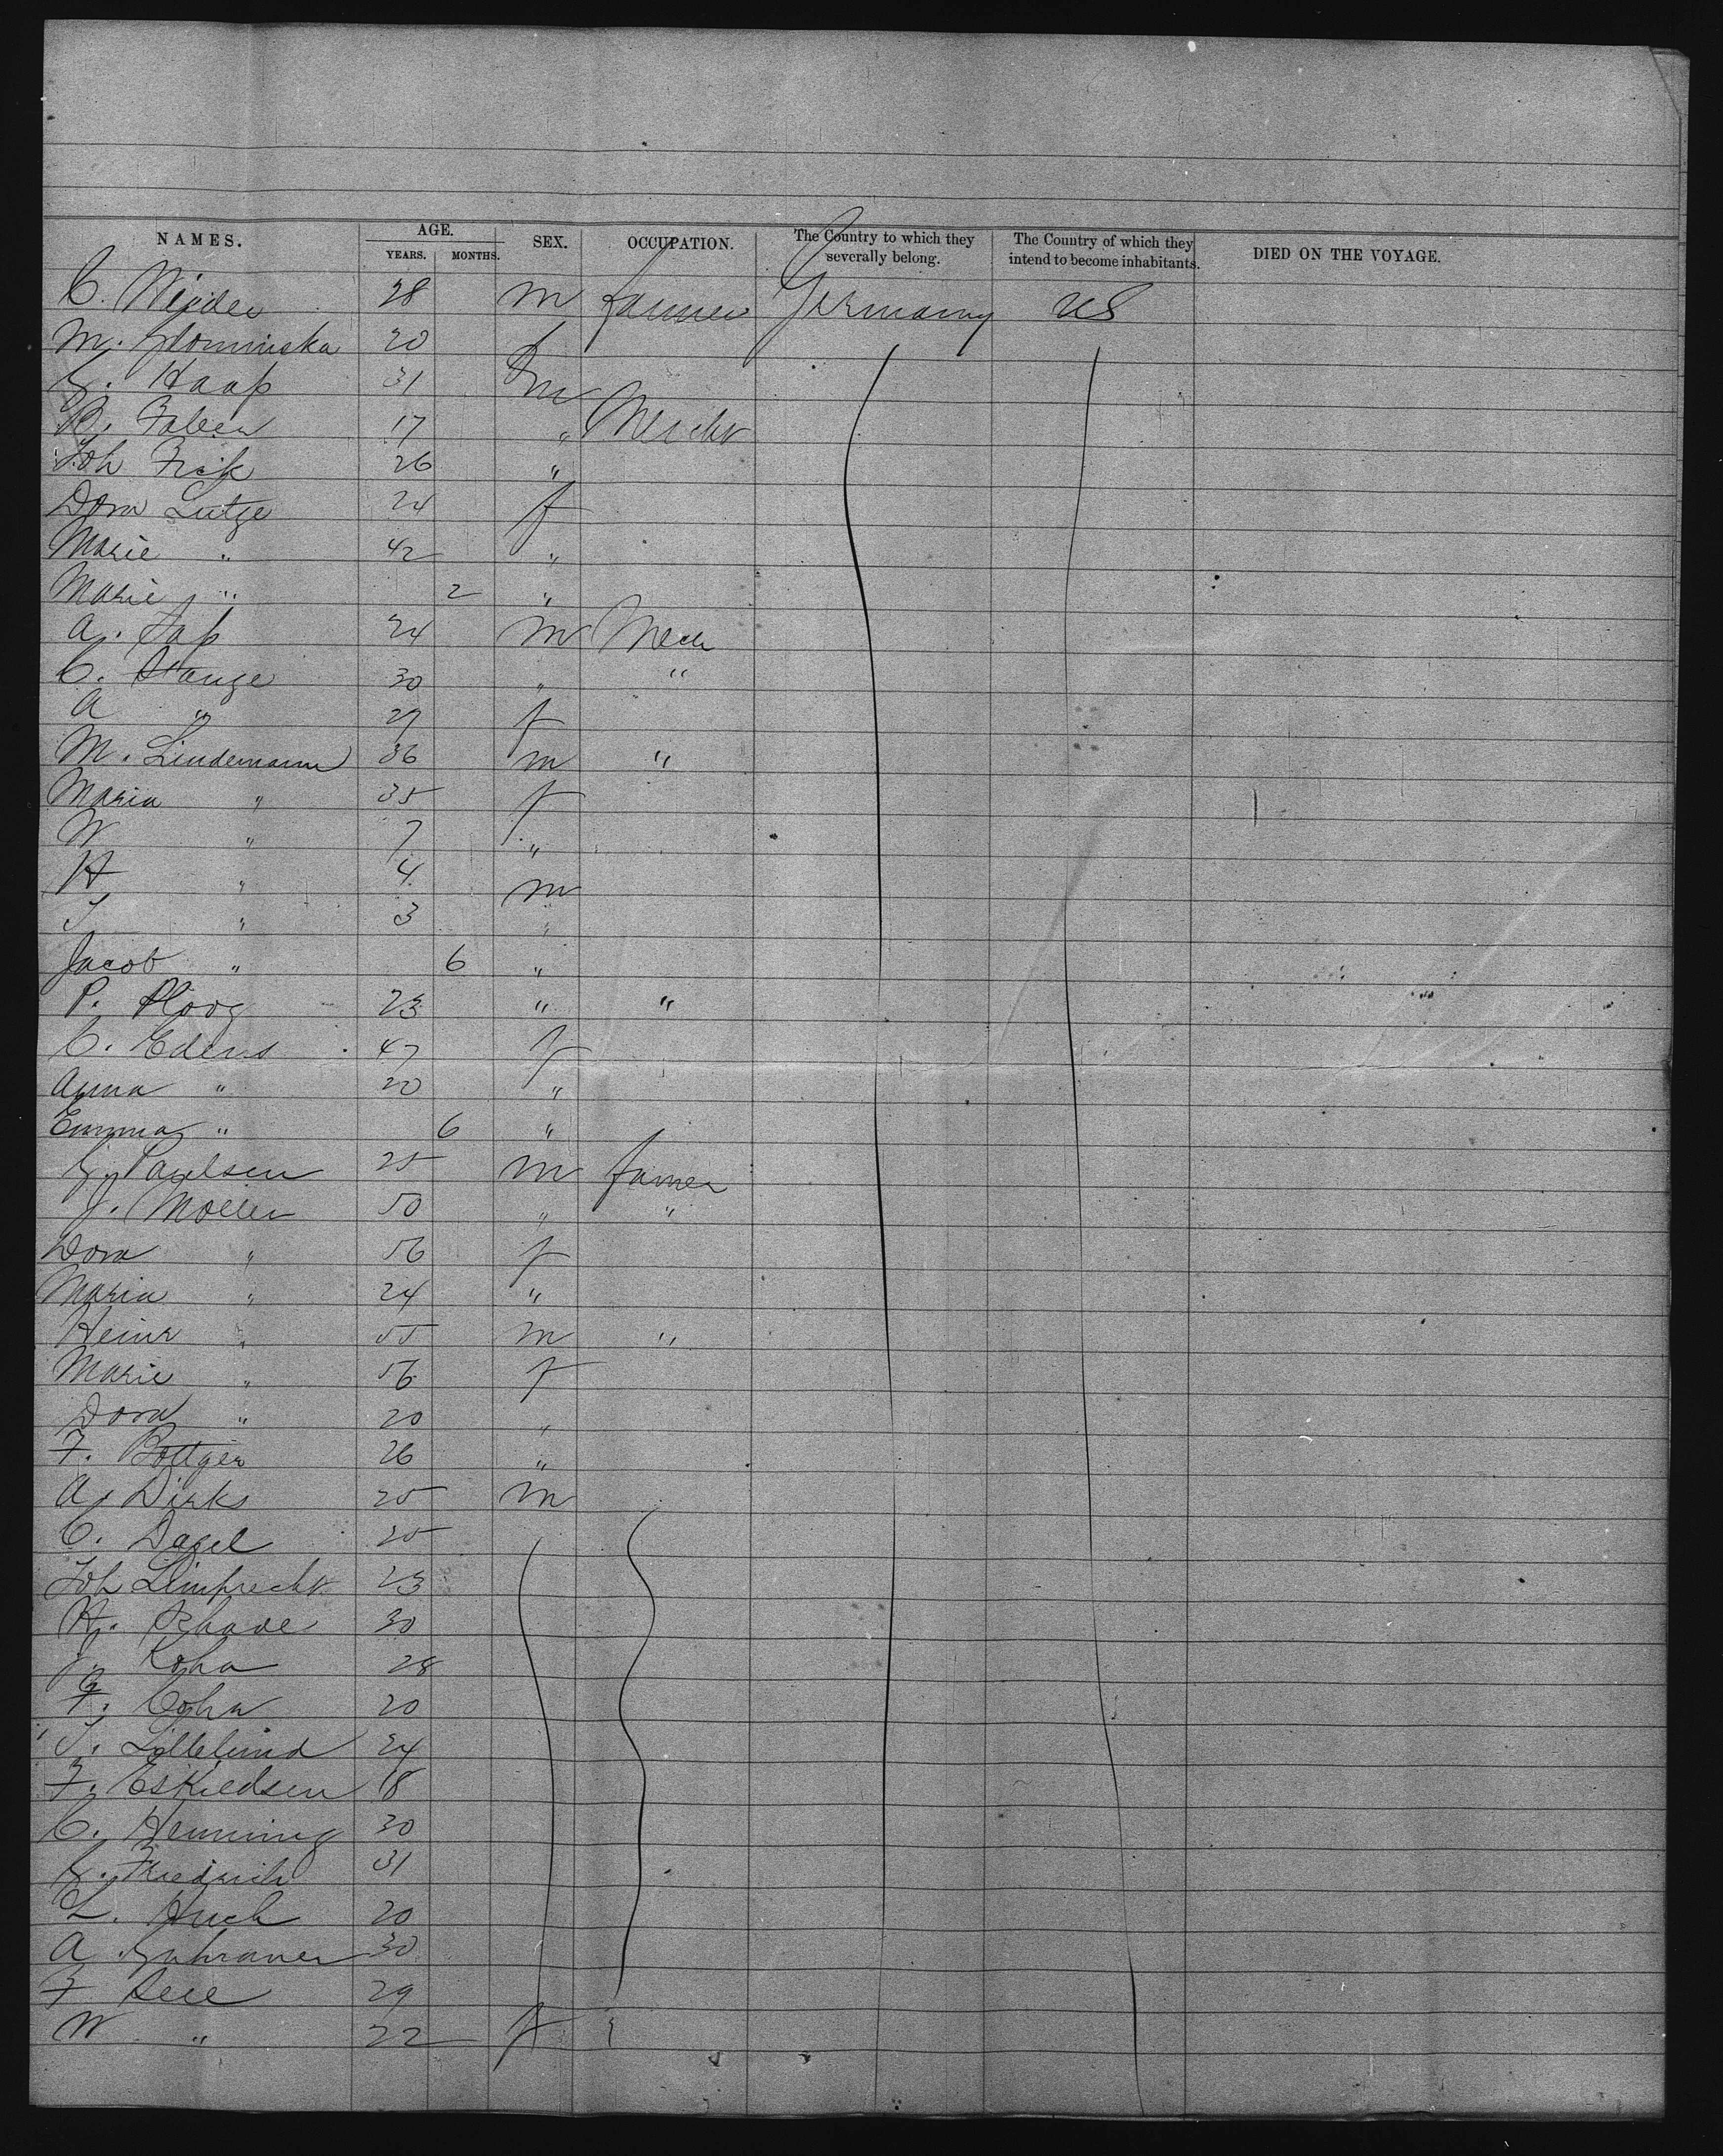 NAMES. AGE. YEARS. MONTHS. SEX. OCCUPATION. The Country to which they severally belong. The Country of which they intend to become inhabitants. DIED ON THE VOYAGE.
C. 28 m farmer Germany US
M. 20 f
G. Haap 31 m
17 " Mercht
Joh Fick 26 "
Dora Lutze 24 f
Marie " 42 "
Marie " 2 "
A. 24 m Mech
C. Stange 30 " "
A " 29 f
M. Lindemann 36 m "
Maria " 35 f
W " 7 "
H " 4 m
J " 3 "
Jacob " 6 "
P. Ploog 23 " "
C. Edens 47 f
Anna " 20 "
Emma " 6 "
G. Paulsen 25 m farmer
J. Moller 50 " "
Dora " 56 f
Maria " 24 "
Heinr " 55 m "
Marie " 56 f
Dora " 20 "
F. Bottger 26 "
A. Dirks 25 m
C. Dagel 25
Joh Limprecht 23
H. Rhade 30
J. Kohn 28
F. Cohn 20
J. Lillelund 24
F. Eskildsen 18
C. Henning 30
G. Friedrich 31
L. Huch 20
A. Guhrauer 30
F 29
W " 22 f